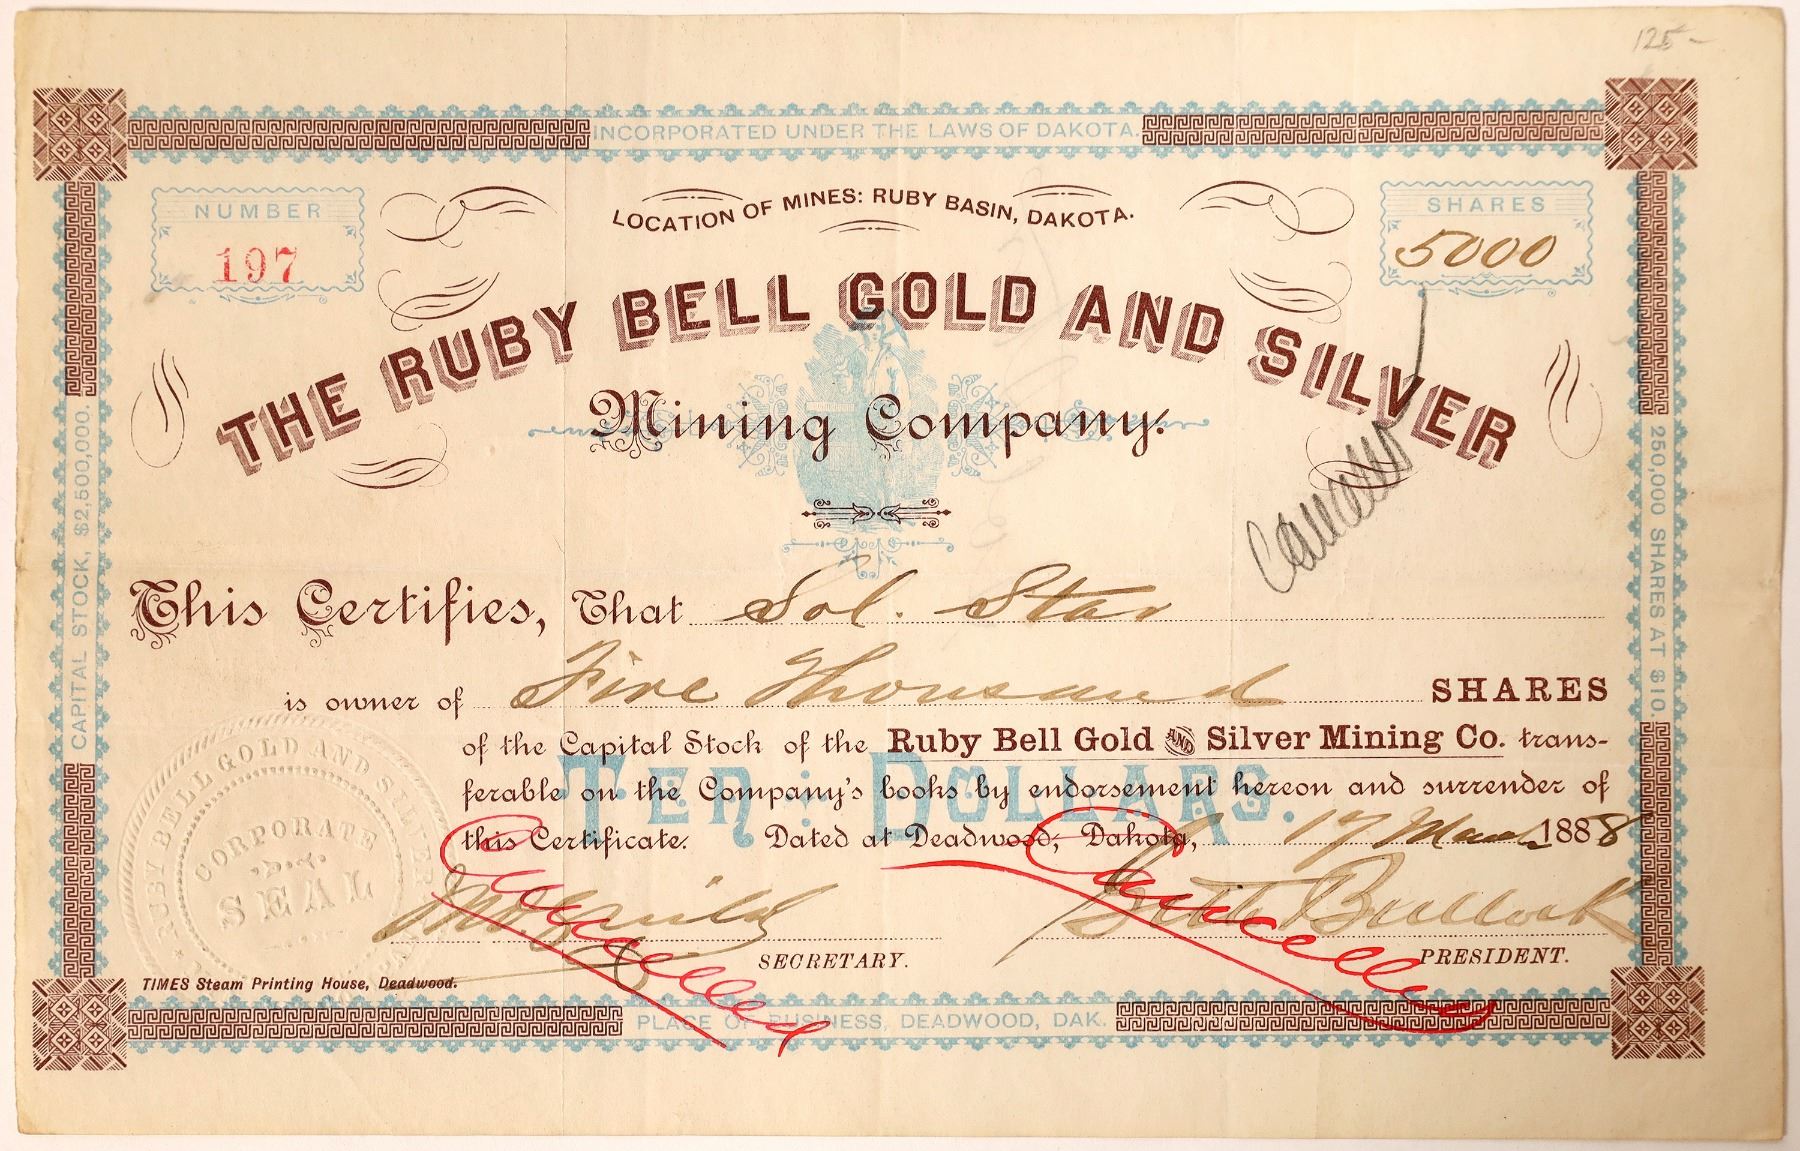 125-
INCORPORATED UNDER THE LAWS OF DAKOTA.
NUMBER
197
LOCATION OF MINES: RUBY BASIN, DAKOTA.
SHARES
5000
THE RUBY BELL GOLD AND SILVER
Mining Company.
Cancelled
CAPITAL STOCK, $2,500,000.
250,000 SHARES AT $10.
This Certifies, That Sol. Star
is owner of Five Thousand SHARES
of the Capital Stock of the Ruby Bell Gold AND Silver Mining Co. trans-
ferable on the Company's books by endorsement hereon and surrender of
TEN DOLLARS.
this Certificate. Dated at Deadwood, Dakota, 17 March 1888
Cancelled
Cancelled
Seth Bullock
SECRETARY.
PRESIDENT.
RUBY BELL GOLD AND SILVER
CORPORATE
D.T.
SEAL
TIMES Steam Printing House, Deadwood.
PLACE OF BUSINESS, DEADWOOD, DAK.